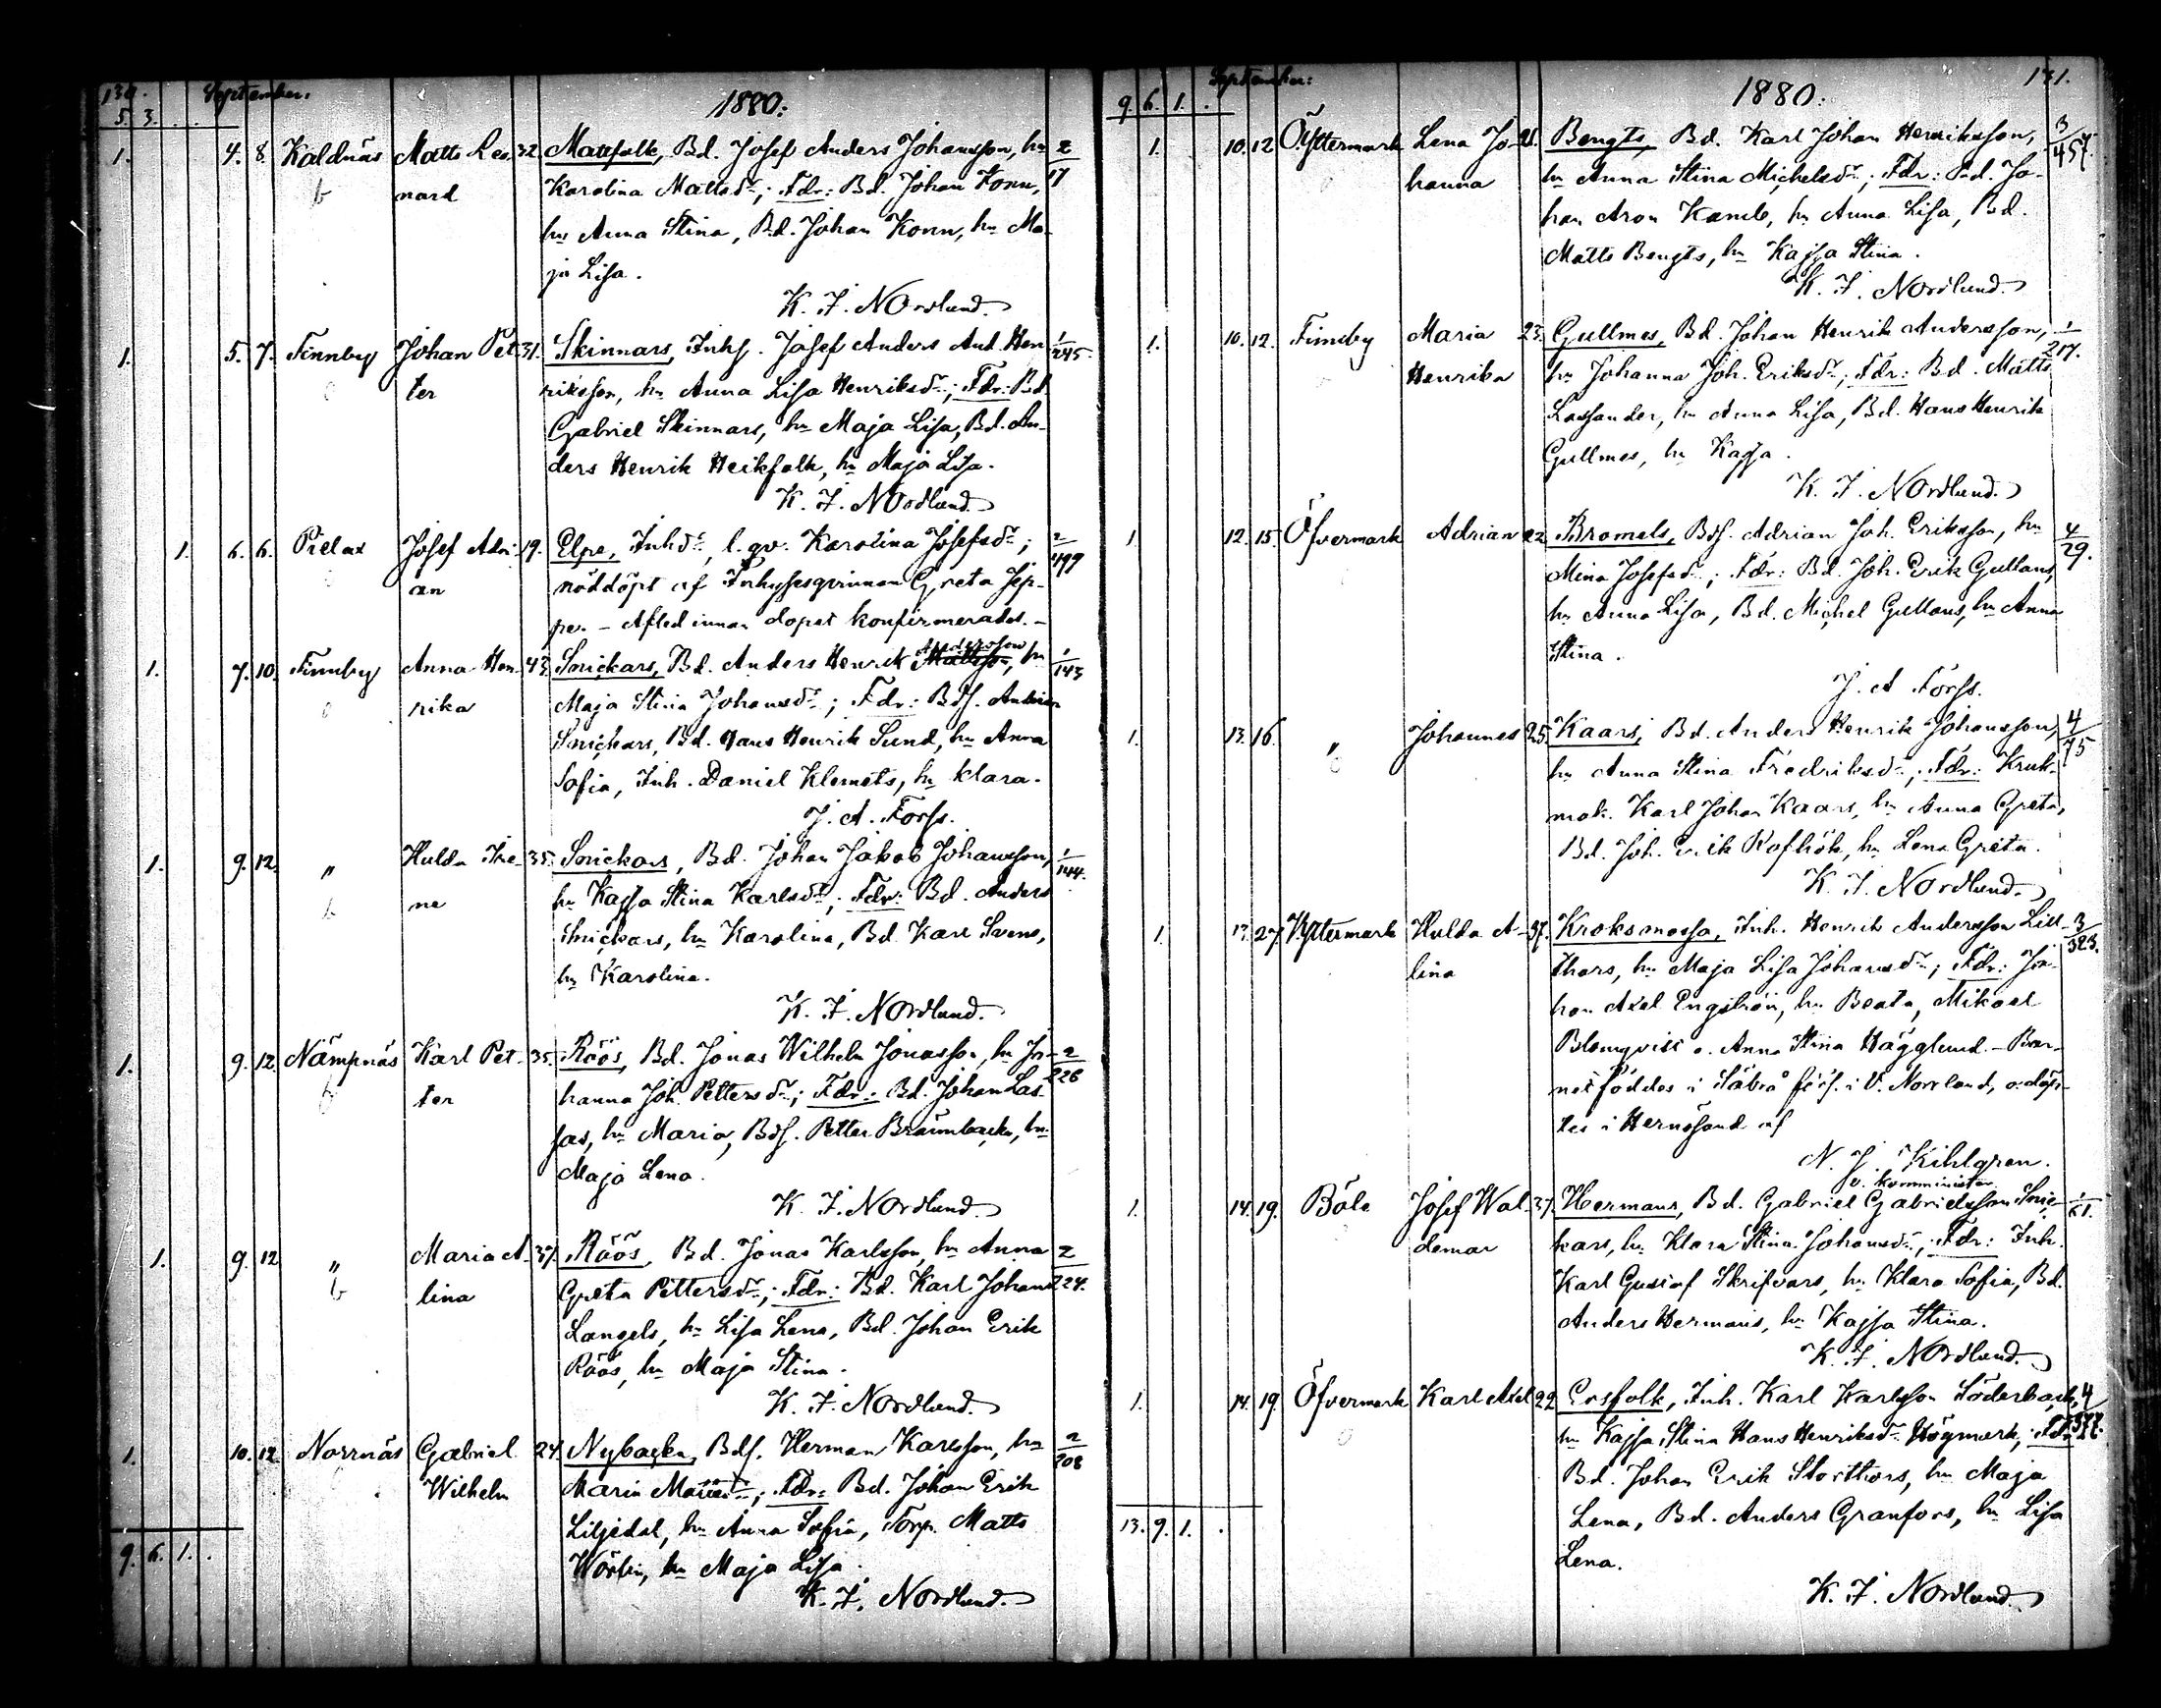 130. September. 1880.
5. 3. . .
1. 4. 8. Kaldnäs Matts Leo- 32. Mattfolk, Bd. Josef Anders Johansson, hu 2/17
b nard Karolina Mattsdr; Fdr: Bd. Johan Konn,
hu Anna Stina, Bd. Johan Konn, hu Ma-
ja Lisa.
K. F. Nordlund.
1. 5. 7. Finnby Johan Pet- 31. Skinnars, Inhs. Josef Anders And. Hen- 1/245.
ter riksson, hu Anna Lisa Henriksdr; Fdr: Bd.
Gabriel Skinnars, hu Maja Lisa, Bd. An-
ders Henrik Heikfolk, hu Maja Lisa.
K. F. Nordlund.
1. 6. 6. Pielax Josef Adri- 19. Elpe, Inhdr, l. qv. Karolina Josefsdr; 2/499
an nöddöpt af Inhysesqvinnan Greta Jep-
pe. – Afled innan dopet konfirmerades. –
Andersson
1. 7. 10. Finnby Anna Hen- 43. Snickars, Bd. Anders Henrik Mattsson, hu 1/143
rika Maja Stina Johansdr; Fdr: Bds. Anders
Snickars, Bd. Hans Henrik Sund, hu Anna
Sofia, Inh. Daniel Klemets, hu Klara.
J. A. Forss.
1. 9. 12. " Hulda Ire- 35. Snickars, Bd. Johan Jakob Johansson, 1/144.
b ne hu Kajsa Stina Karlsdr; Fdr: Bd. Anders
Snickars, hu Karolina, Bd. Karl Svens,
hu Karolina.
K. F. Nordlund.
1. 9. 12. Nämpnäs Karl Pet- 35. Röös, Bd. Jonas Wilhelm Jonasson, hu Jo- 2/226
b ter hanna Joh. Pettersdr; Fdr: Bd. Johan Las-
sas, hu Maria, Bds. Petter Brännbacka, hu
Maja Lena.
K. F. Nordlund.
1. 9. 12 " Maria A- 37. Röös, Bd. Jonas Karlsson, hu Anna 2/224.
b lina Greta Pettersdr; Fdr: Bd. Karl Johan
Langels, hu Lisa Lena, Bd. Johan Erik
Röös, hu Maja Stina.
K. F. Nordlund.
1. 10. 12. Norrnäs Gabriel 24. Nybacka, Bds. Herman Karlsson, hu 2/208
Wilhelm Maria Mattsdr; Fdr: Bd. Johan Erik
Liljedal, hu Anna Sofia, Torp. Matts
Wörlin, hu Maja Lisa.
9. 6. 1. .
K. F. Nordlund.
September: 1880. 131.
9. 6. 1. .
1. 10. 12 Yttermark Lena Jo- 21. Bengts, Bd. Karl Johan Henriksson, 3/457.
hanna hu Anna Stina Michelsdr; Fdr: Bd. Jo-
han Aron Kamb, hu Anna Lisa, Bd.
Matts Bengts, hu Kajsa Stina.
K. F. Nordlund.
1. 10. 12. Finnby Maria 23. Gullmes, Bd. Johan Henrik Andersson, 1/217.
Henrika hu Johanna Joh. Eriksdr; Fdr: Bd. Matts
Lassander, hu Anna Lisa, Bd. Hans Henrik
Gullmes, hu Kajsa.
K. F. Nordlund.
1. 12. 15. Öfvermark Adrian 22. Bromels, Bds. Adrian Joh. Eriksson, hu 4/29.
Mina Josefsdr; Fdr: Bd. Joh. Erik Gullans,
hu Anna Lisa, Bd. Michel Gullans, hu Anna
Stina.
J. A Forss.
1. 13. 16. " Johannes 25. Kaars, Bd. Anders Henrik Johansson, 4/75
hu Anna Stina Fredriksdr; Fdr: Kruk-
mak. Karl Johan Kaars, hu Anna Greta,
Bd. Joh. Erik Rofhök, hu Lena Greta.
K. F. Nordlund.
1. 13. 27. Yttermark Hulda A- 37. Kroksmossa, Inh. Henrik Andersson Lill- 3/323.
lina thors, hu Maja Lisa Johansdr; Fdr: Jo-
han Axel Engström, hu Beata, Mikael
Blomqvist o. Anna Stina Hägglund. – Bar-
net föddes i Säbrå förs. i V. Norrland, o. döp-
tes i Hernösand af
N. J. Kihlgren.
v. komminister.
1. 14. 19. Böle Josef Wal- 37. Hermans, Bd. Gabriel Gabrielsson Snic- 1/61.
demar kars, hu Klara Stina Johansdr; Fdr: Inh.
Karl Gustaf Skrifvars, hu Klara Sofia, Bd.
Anders Hermans, hu Kajsa Stina.
K. F. Nordlund.
1. 14. 19. Öfvermark Karl Axel 22. Ersfolk, Inh. Karl Karlsson Söderback, 4
hu Kajsa Stina Hans Henriksdr Högmark; Fdr:
Bd. Johan Erik Storthors, hu Maja
13. 9. 1. . Lena, Bd. Anders Granfors, hu Lisa
Lena.
K. F. Nordlund.